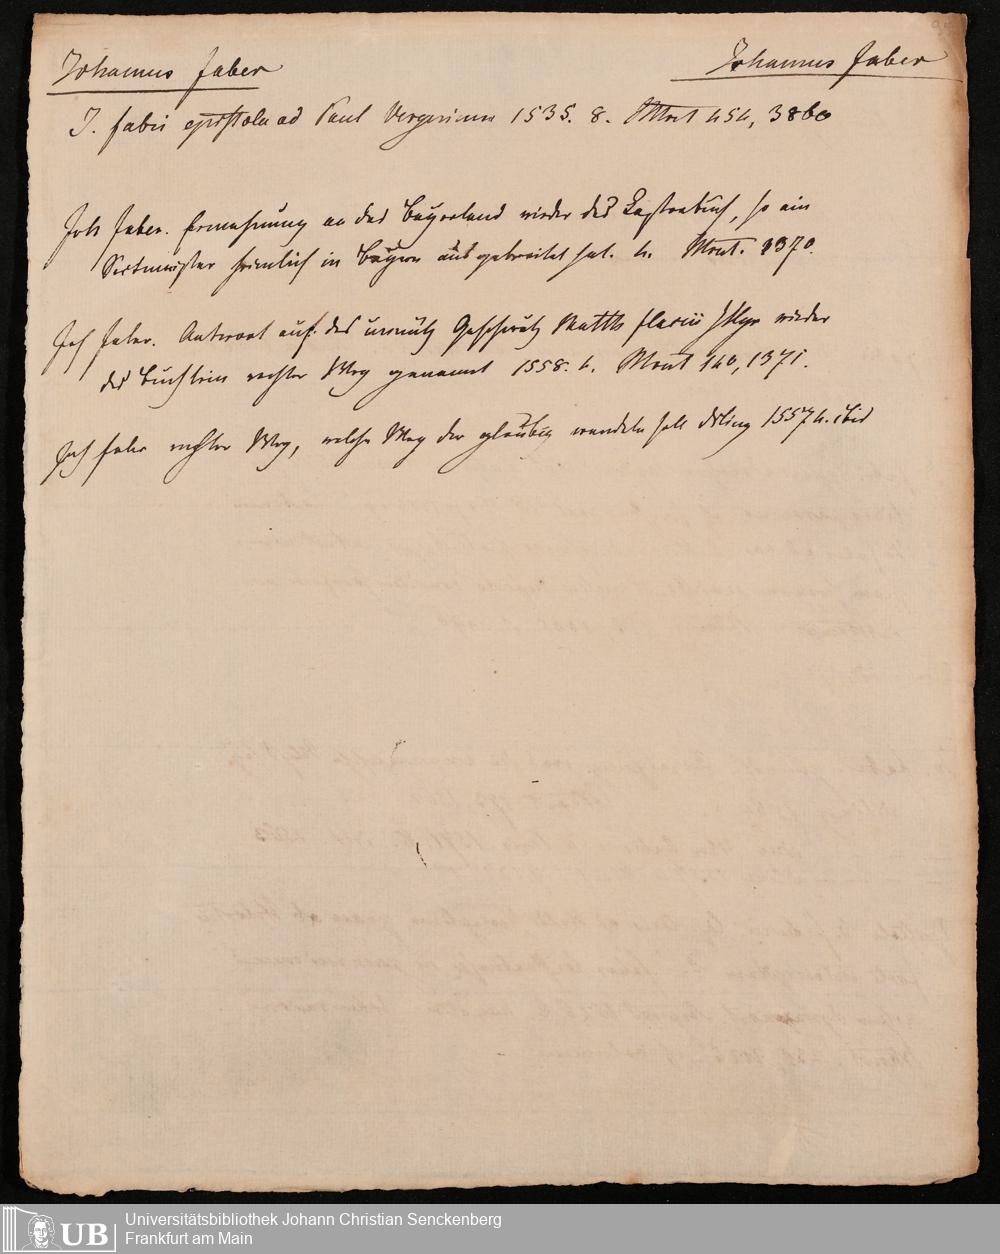 Johannes Faber
Johannes Faber
J. Fabri epistola ad Paul Vergerium 1535. 8. Mont 454, 3860
Joh Faber. Ermahnung an das Bayerland wieder das Lasterbuch, so ein
Sectmeister heimlich in Bayern ausgebreitet hat. 4. Mont. 1370.
Joh Faber. Antwort auf das unnütz Geschwätz Matth flacii Illyr wieder
das Buchlein rechter Weg genannt 1558. 4. Mont 140, 1371.
Joh Faber rechter Weg, welche Weg der gläubig wandeln soll Diling 1557 4. ibid
UB
Universitätsbibliothek Johann Christian Senckenberg
Frankfurt am Main